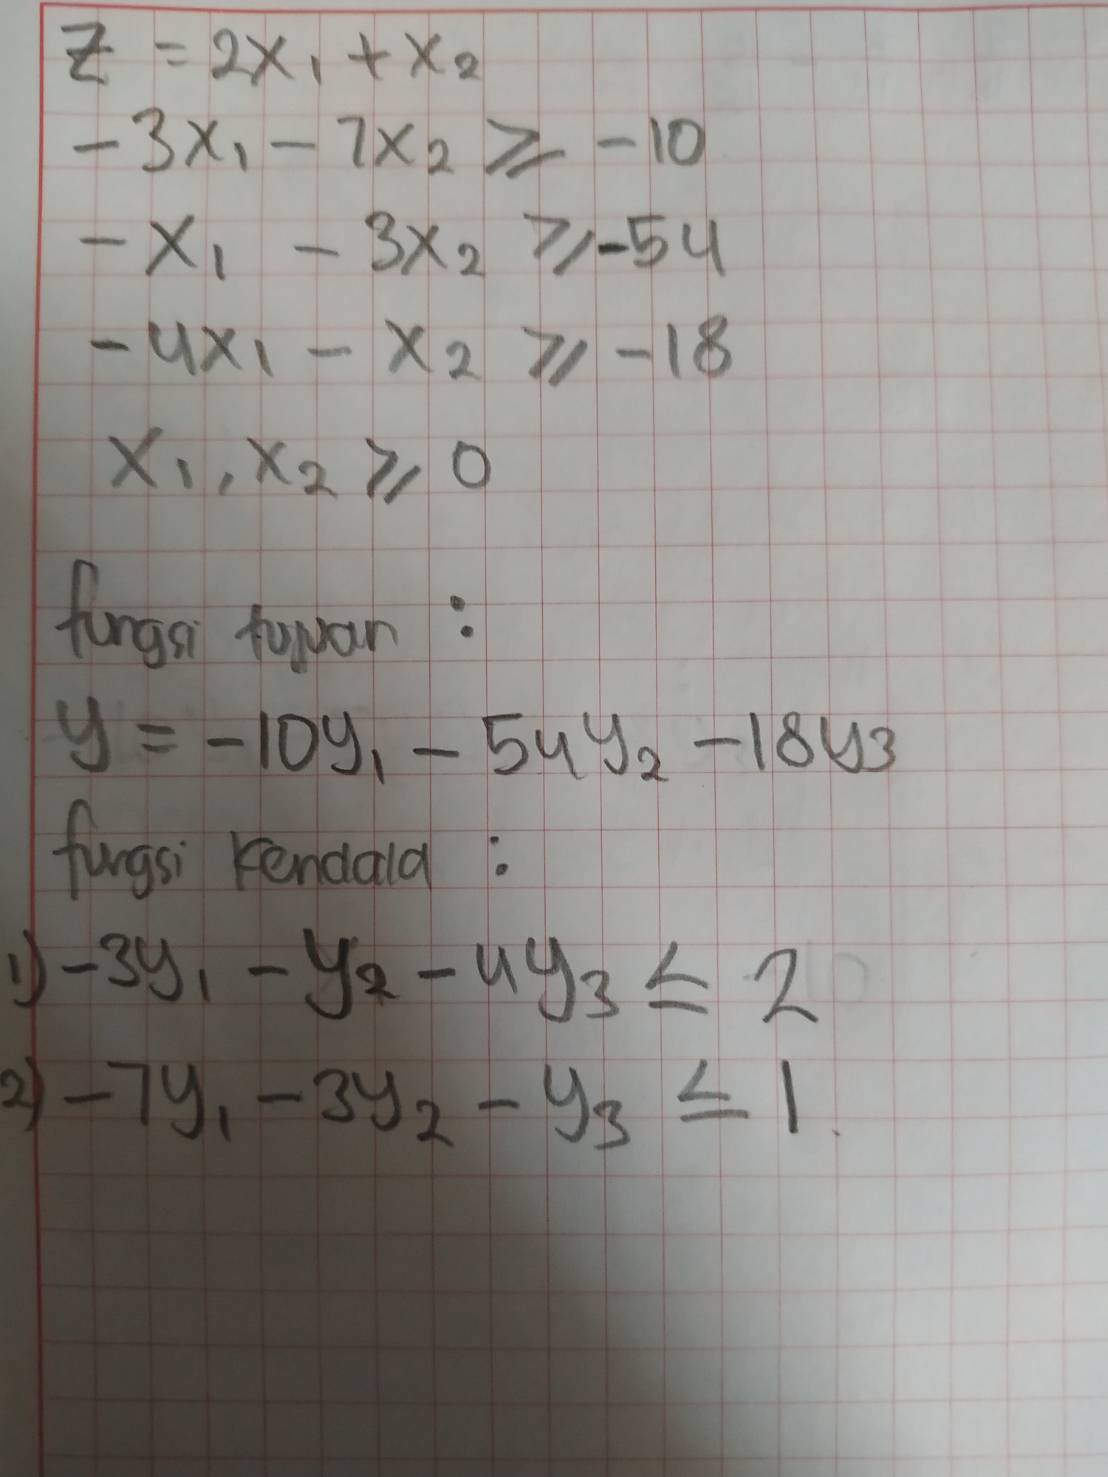 Z = 2x₁ + x₂
-3x₁ - 7x₂ ⩾ -10
-x₁ - 3x₂ ⩾ -54
-4x₁ - x₂ ⩾ -18
x₁, x₂ ⩾ 0
fungsi tujuan :
y = -10y₁ - 54y₂ - 18y₃
fungsi kendala :
1) -3y₁ - y₂ - 4y₃ ≤ 2
2) -7y₁ - 3y₂ - y₃ ≤ 1.